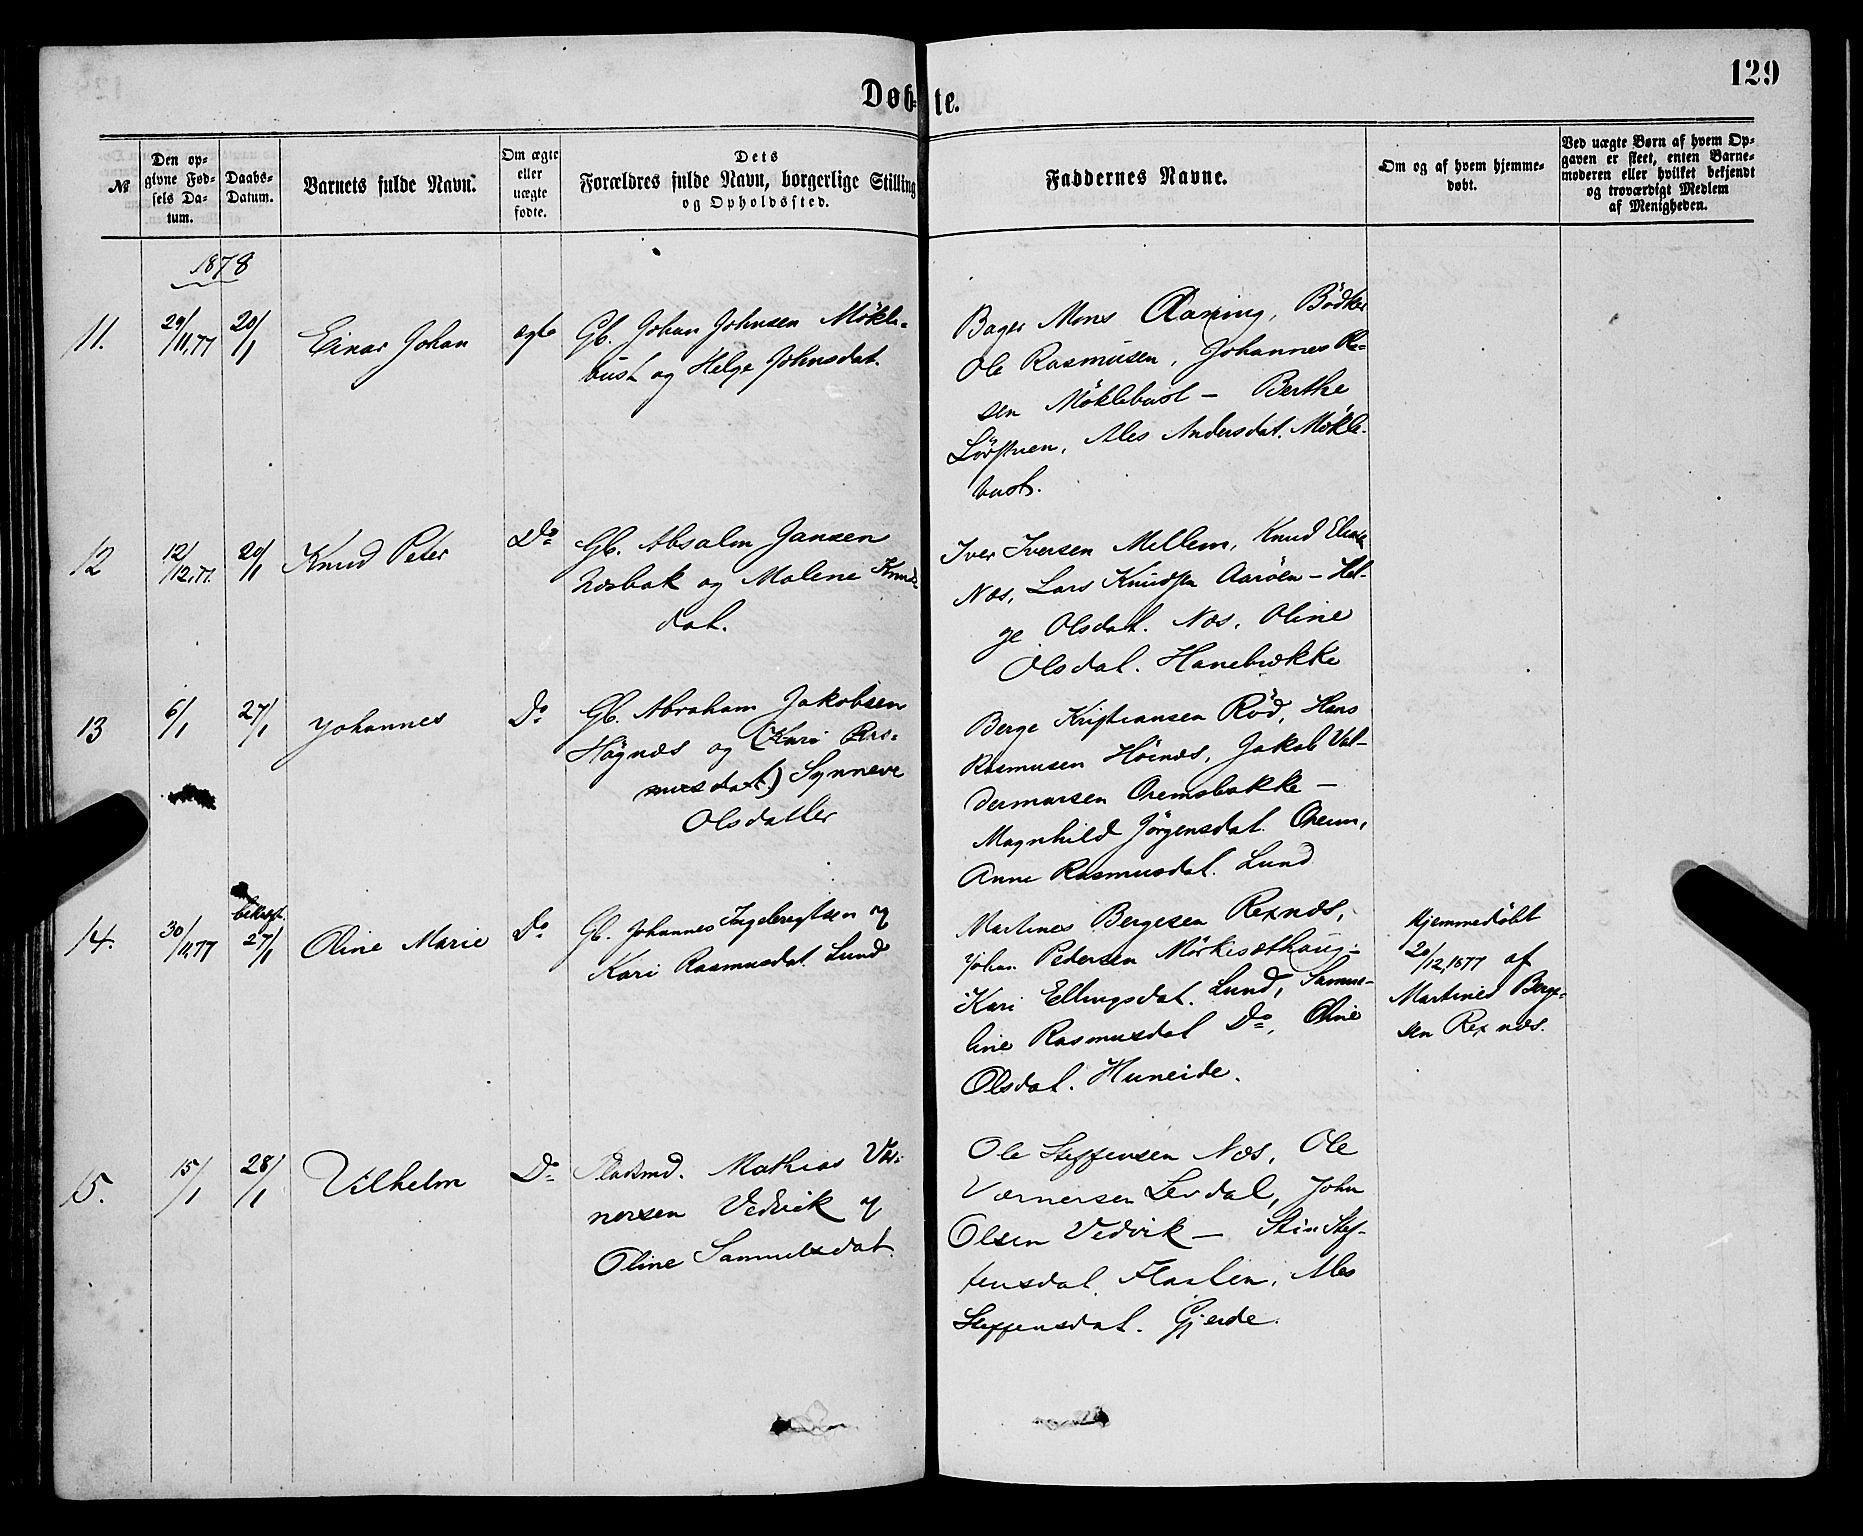 129
Døbte.
№
Den opgivne Fødsels Datum.
Daabs-Datum.
Barnets fulde Navn.
Om ægte eller uægte fødte.
Dets
Forældres fulde Navn, borgerlige Stilling
og Opholdssted.
Faddernes Navne.
Om og af hvem hjemmedøbt.
Ved uægte Børn af hvem Opgaven er skeet, enten Barnemoderen eller hvilket bekjendt og troværdigt Medlem af Menigheden.
1878
11. 29/11,77 20/1 Einar Johan ægte
Gb. Johan Johnsen Mökle-
bust og Helge Johnsdat.
Bager Mons Aaning, Bödker
Ole Rasmusen, Johannes
sen Möklebust – Berthe
Ales Andersdat. Mökle-
bust.
12 12/12,77. 20/1 Knud Peter Do
Gb. Absalon Jansen
Næsbak og Malene Knuds-
dat.
Iver Iversen Mellem, Knud
Næs, Lars Knudsen Aaröen – Hel-
ge Olsdat. Næs, Oline
Olsdat. Hanebrække
13 6/1 27/1 Johannes Do
Gb. Abraham Jakobsen
Högnæs og (Kari Ras-
musdat.) Synneve
Olsdatter
Berge Kristiansen Röd, Hans
Rasmusen Höinæs, Jakob Val-
dermarsen Oremsbakke –
Magnhild Jörgensdat. Orem,
Anne Rasmusdat. Lund
14. 30/11,77 bekræft. 27/1 Oline Marie Do
Gb. Johannes Ingebrigtsen og
Kari Rasmusdat. Lund
Martines Bergesen Rexnæs,
Johan Pedersen Mörkisæthaug –
Kari Ellingsdat. Lund, Samue-
line Rasmusdat Do, Oline
Olsdat. Huneide.
Hjemmedöbt
20/12,1877 af
Martines Berge-
sen Rexnæs.
15. 15/1 28/1 Vilhelm Do
Pladsmd. Mathias Vær-
nersen Vedvik og
Oline Samuelsdat.
Ole Steffensen Næs, Ole
Værnersen Levdal, John
Olsen Vedvik – Stef-
fensdat. Flaaten, Ales
Steffensdat. Gjerde.